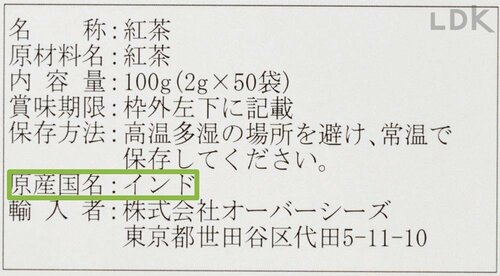 LDK
名　　称：紅茶
原材料名：紅茶
内 容 量：100g(2g×50袋)
賞味期限：枠外左下に記載
保存方法：高温多湿の場所を避け、常温で
保存してください。
原産国名：インド
輸 入 者：株式会社オーバーシーズ
東京都世田谷区代田5-11-10